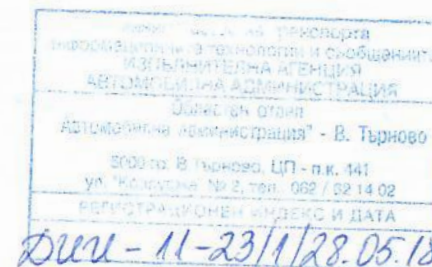 на транспорта
информационните технологии и съобщенията
ИЗПЪЛНИТЕЛНА АГЕНЦИЯ
АВТОМОБИЛНА АДМИНИСТРАЦИЯ
Областен отдел
Автомобилна администрация" - В. Търново
5000 гр. В. Търново, ЦП - п.к. 441
ул. № 2, тел. 062 / 62 14 02
РЕГИСТРАЦИОНЕН ИНДЕКС И ДАТА
ДИИ - 11-23/1/28.05.18